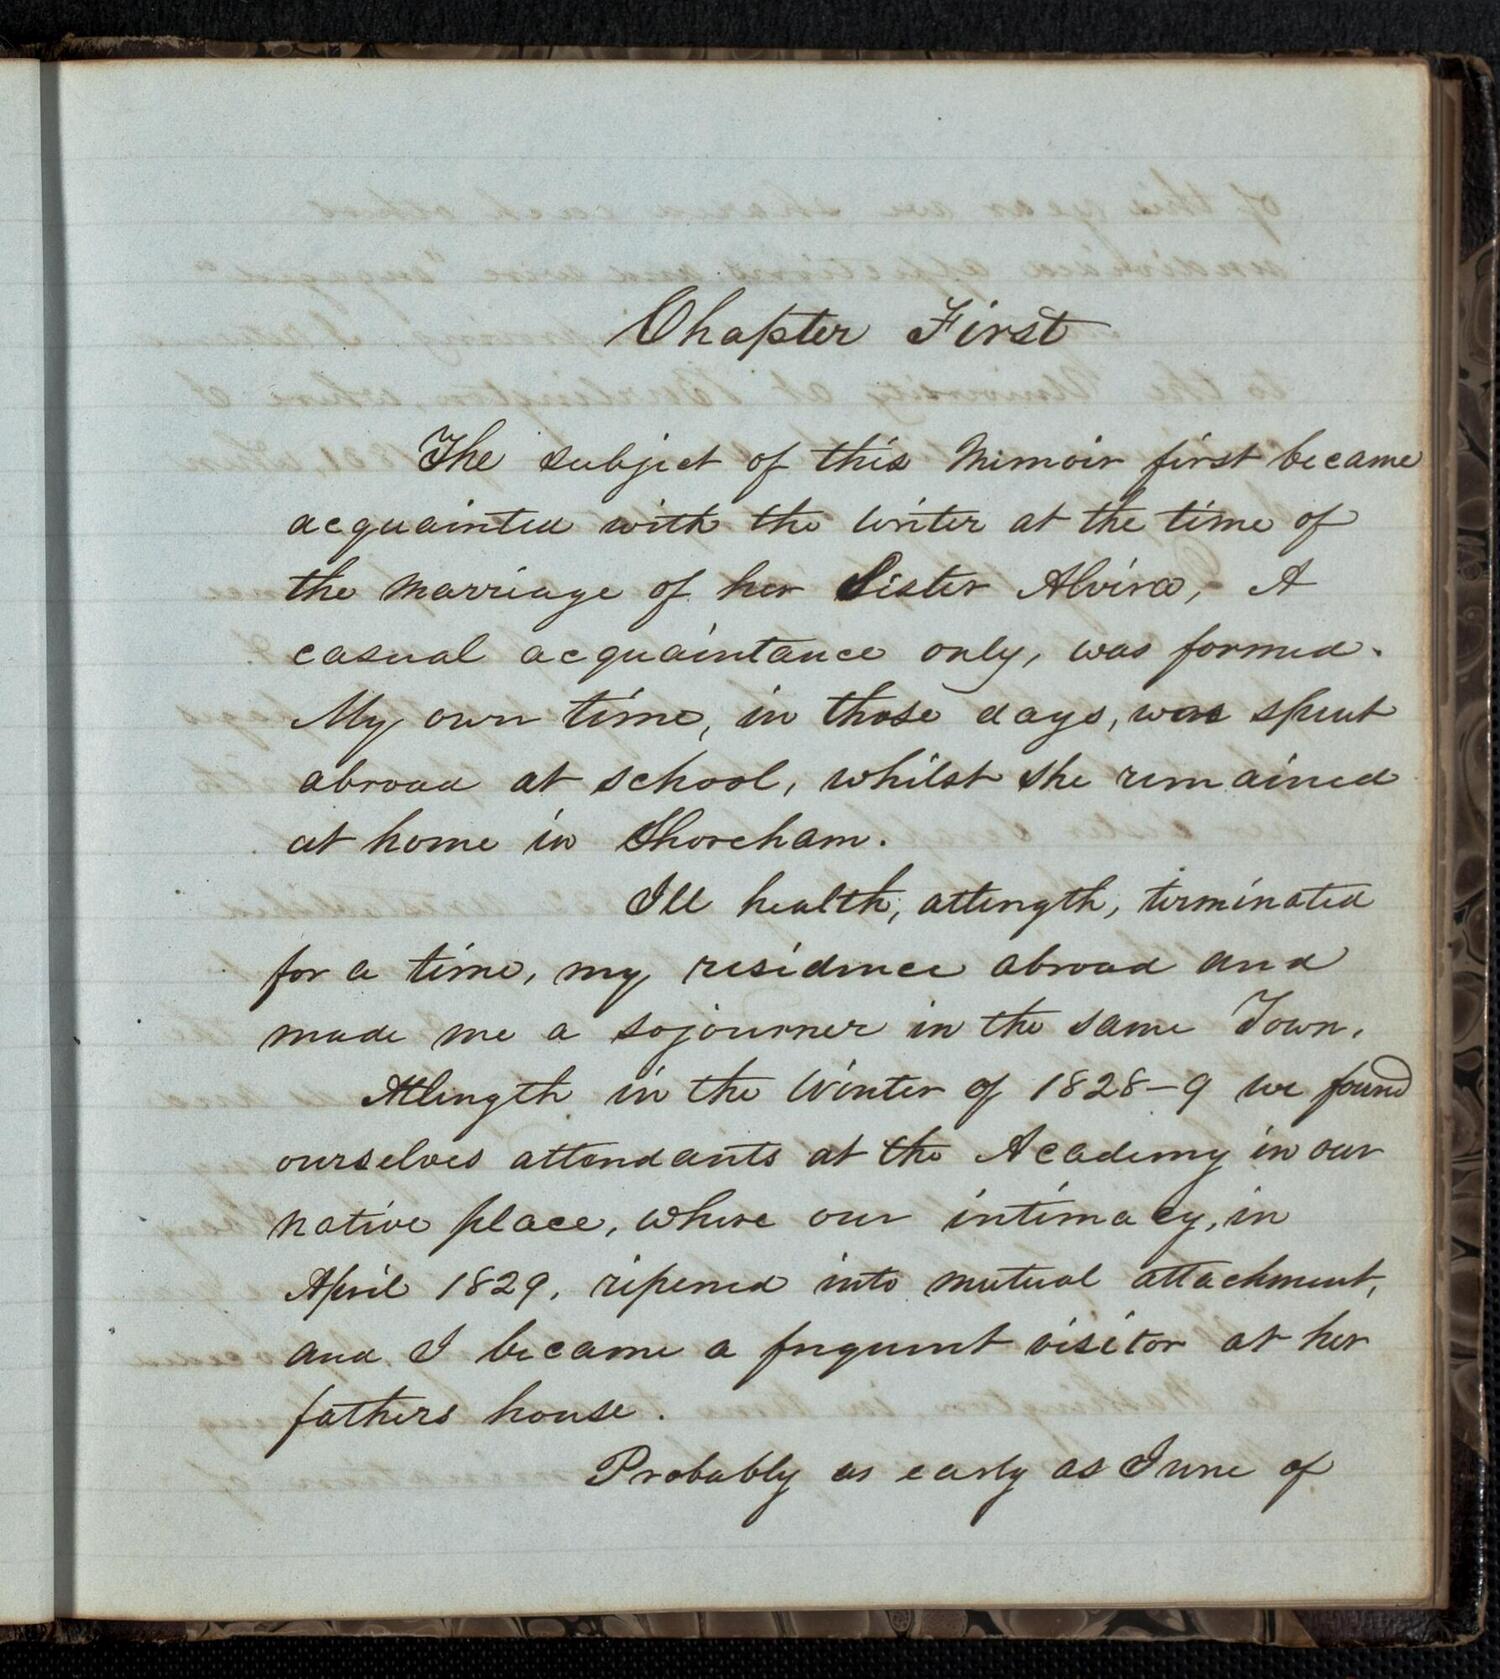 Chapter First
The subject of this Memoir first became
acquainted with the writer at the time of
the Marriage of her Sister Alvira, - A
casual acquaintance only, was formed.
My own time, in those days, was spent
abroad at school, whilst she remained
at home in Shoreham.
Ill health, attength, terminated
for a time, my residence abroad and
made me a sojourner in the same Town.
Atlength in the Winter of 1828-9 we found
ourselves attendants at the Academy in our
native place, where our intimacy, in
April 1829, ripened into mutual attachment,
and I became a frequent visitor at her
fathers house.
Probably as early as June of